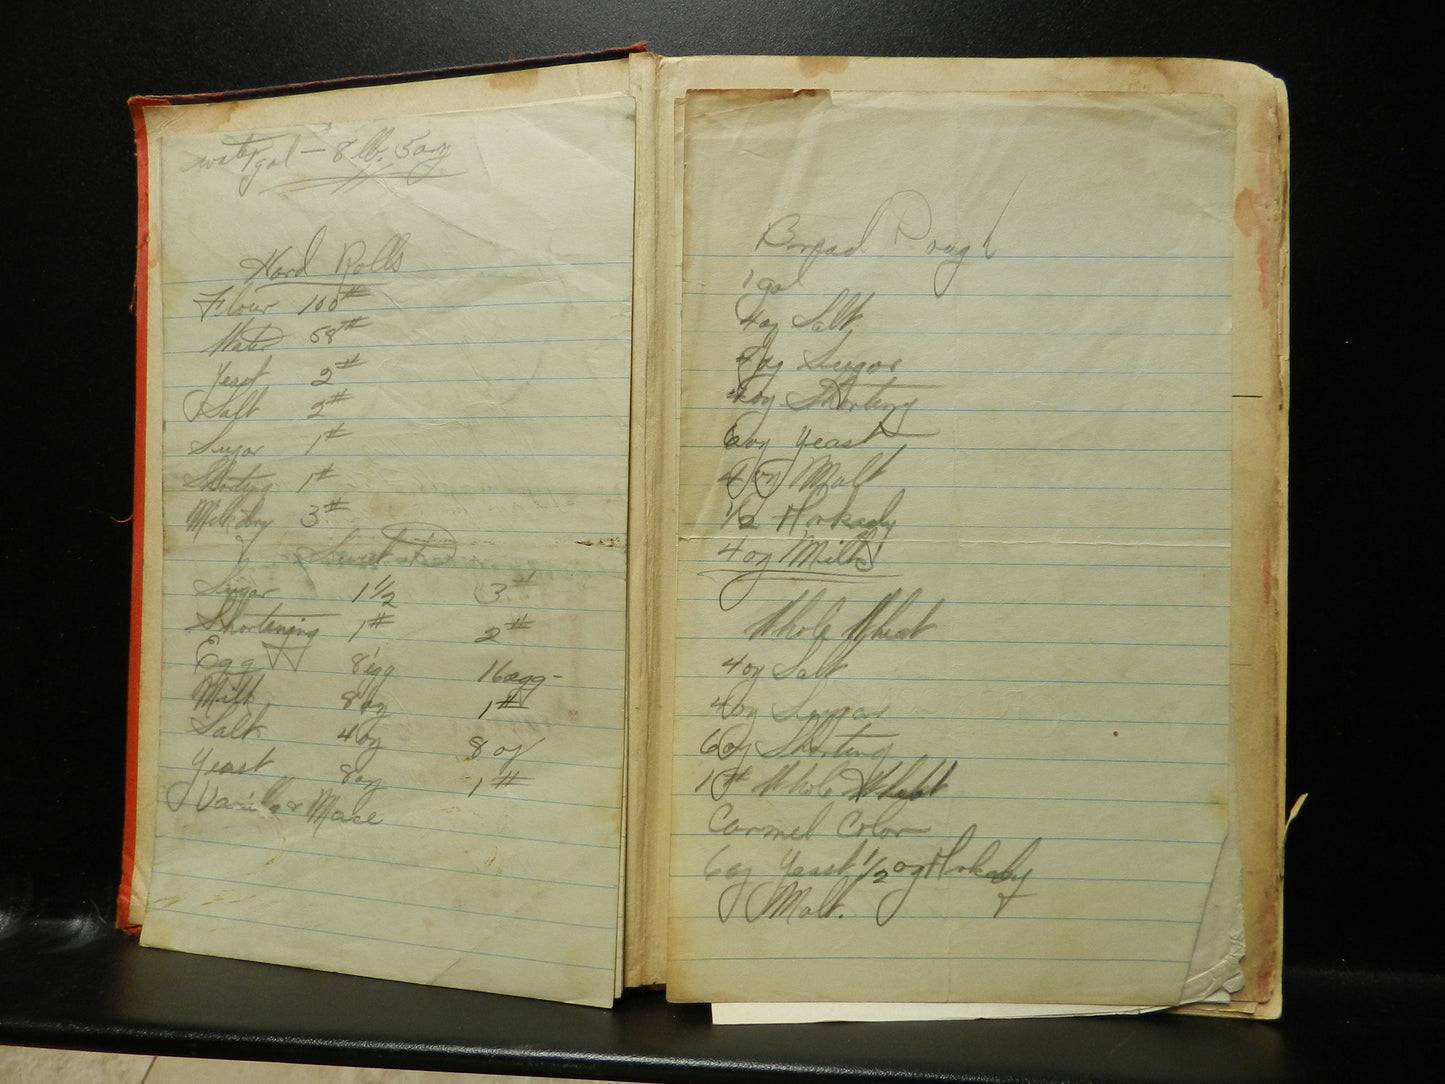 water gal — 8 lb. 5 oz
Hard Rolls
Flour 100#
Water 58#
Yeast 2#
Salt 2#
Sugar 1#
Shorting 1#
Milk dry 3#
Sweet
Sugar 1 1/2 3#
Shortening 1# 2#
Egg 8 egg 16 egg
Milk 8 oz 1#
Salt 4 oz 8 oz
Yeast 8 oz 1#
Vanilla & Mace
Bread Dough
1 gal
4 oz Salt
oz Sugar
oz Shorting
6 oz Yeast
4 oz Malt
1/2 Arkady
4 oz Milk
Whole Wheat
4 oz Salt
4 oz Sugar
6 oz Shorting
1# Whole Wheat
Carmel Color
6 oz Yeast 1/2 oz Arkady
Malt.